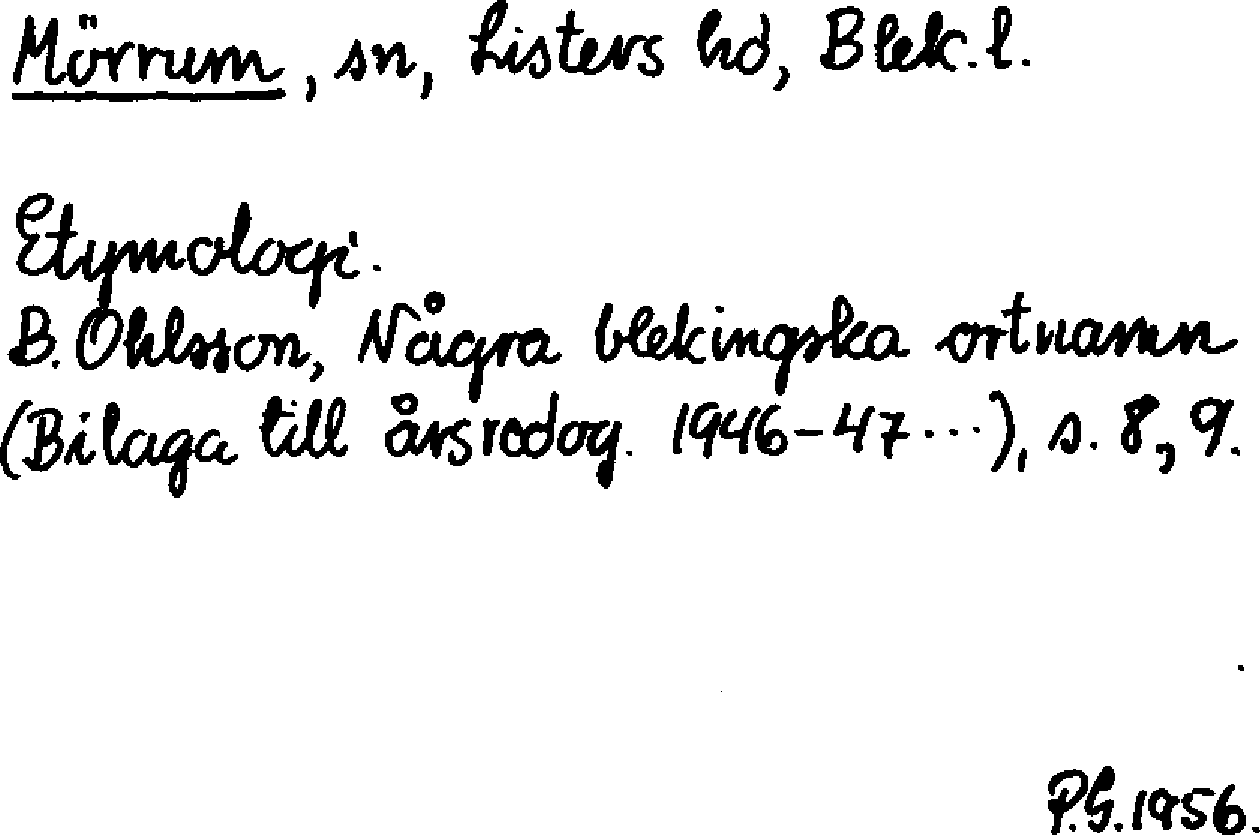 Mörrum, sn, Listers hd, Blek. l.
Etymologi.
B. Ohlsson, Några blekingska ortnamn
(Bilaga till årsredog. 1946-47...), s. 8, 9.
P.G. 1956.